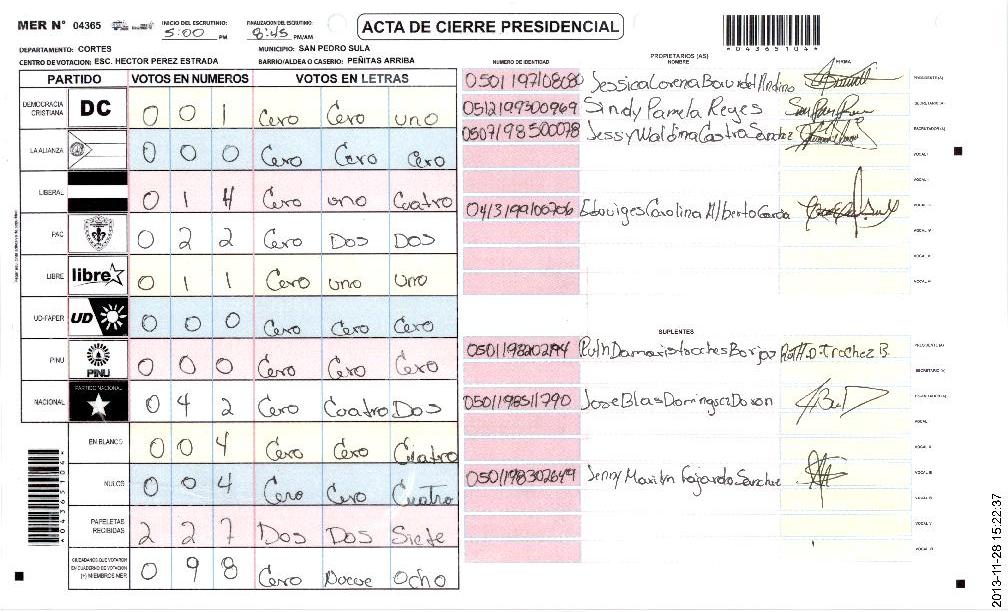 MER N° 04365
INICIO DEL ESCRUTINIO:
5:00 PM
FINALIZACION DEL ESCRUTINIO:
8:45 PM/AM
ACTA DE CIERRE PRESIDENCIAL
*0436510 4*
DEPARTAMENTO: CORTES
MUNICIPIO: SAN PEDRO SULA
CENTRO DE VOTACION: ESC. HECTOR PEREZ ESTRADA
BARRIO/ALDEA O CASERIO: PEÑITAS ARRIBA
PARTIDO VOTOS EN NUMEROS VOTOS EN LETRAS
DEMOCRACIA CRISTIANA DC 0 0 1 Cero Cero uno
LA ALIANZA 0 0 0 Cero Cero Cero
LIBERAL 0 1 4 Cero uno Cuatro
PAC 0 2 2 Cero Dos Dos
LIBRE libre 0 1 1 Cero uno uno
UD-FAPER UD 0 0 0 Cero Cero Cero
PINU PINU 0 0 0 Cero Cero Cero
NACIONAL PARTIDO NACIONAL 0 4 2 Cero Cuatro Dos
EN BLANCO 0 0 4 Cero Cero Cuatro
NULOS 0 0 4 Cero Cero Cuatro
PAPELETAS RECIBIDAS 2 2 7 Dos Dos Siete
CIUDADANOS QUE VOTARON
EN CUADERNO DE VOTACION
(+) MIEMBROS MER 0 9 8 Cero Nueve Ocho
PROPIETARIOS (AS)
NUMERO DE IDENTIDAD NOMBRE FIRMA
0501197108680 Jessica Lorena PRESIDENTE(A)
0512199300969 Sindy Pamela Reyes SECRETARIO(A)
0507198500078 Jessy Waldina Castro Sanchez ESCRUTADOR(A)
VOCAL I
VOCAL II
0413199100706 Eduviges Carolina Alberto Garcia VOCAL III
VOCAL IV
VOCAL V
VOCAL VI
SUPLENTES
0501198202194 Ruth Damaris Troches Borjas Ruth D. Trochez B. PRESIDENTE(A)
SECRETARIO(A)
0501198511790 Jose Blas Dominguez ESCRUTADOR(A)
VOCAL I
VOCAL II
0501198302649 Jenny Marilyn Fajardo Sanchez VOCAL III
VOCAL IV
VOCAL V
VOCAL VI
2013-11-28 15:22:37